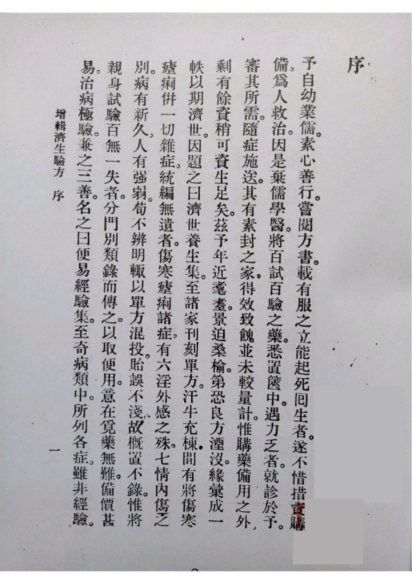 序
予自幼業儒素心善行。嘗閱方書。載有服之立能起死囘生者。遂不惜措資購
備。爲人救治。因是棄儒學醫。將百試百驗之藥。悉置篋中。遇力乏者。就診於予。
審其所需。隨症施送。其有素封之家。得效致餽。並未較量計。惟購藥備用之外。
剩有餘資。稍可資生足矣。茲予年近耄耋。景迫桑榆。第恐良方湮沒。緣彙成一
帙。以期濟世。因題之曰濟世養生集。至諸家刊刻單方。汗牛充棟。間有將傷寒
瘧痢併一切雜症。統編無遺者。傷寒瘧痢諸症。有六淫外感之殊。七情內傷之
別。病有新久。人有強弱。苟不辨明。輒以單方混投。貽誤不淺。故概置不錄。惟將
親身試驗百無一失者。分門別類。錄而傳之。以取便用。意在覓藥無難。備價甚
易。治病極驗。兼之三善。名之曰便易經驗集。至奇病類中。所列各症。雖非經驗。
增輯濟生驗方 序 一